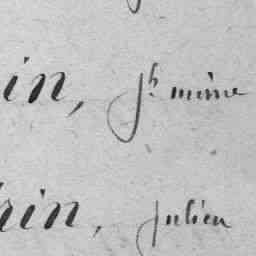 in, Jh. même
rin, Julien